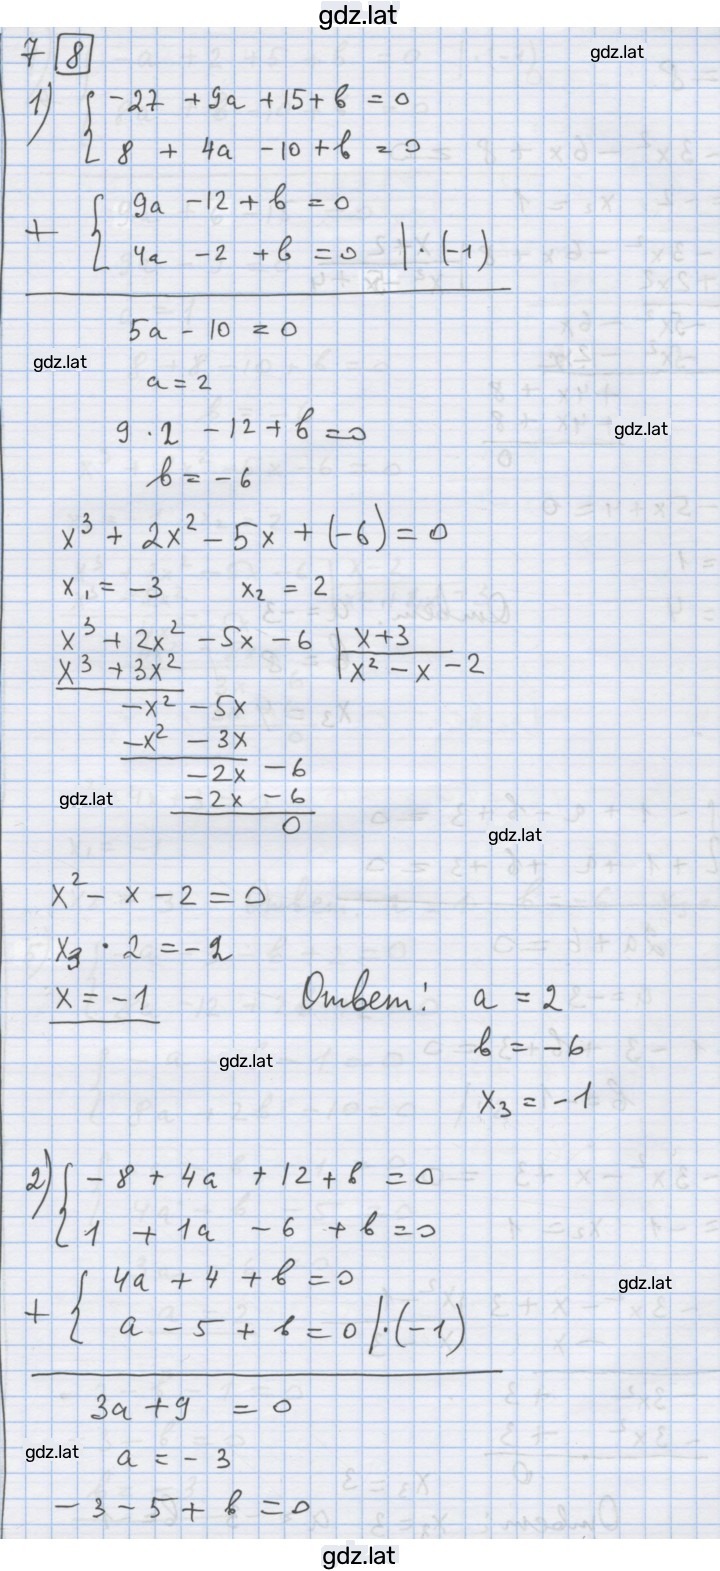 gdz.lat
7 8
gdz.lat
1) { -27 + 9a + 15 + b = 0
8 + 4a - 10 + b = 0
+ { 9a - 12 + b = 0
4a - 2 + b = 0 | · (-1)
5a - 10 = 0
gdz.lat
a = 2
9 · 2 - 12 + b = 0
gdz.lat
b = -6
x³ + 2x² - 5x + (-6) = 0
x₁ = -3 x₂ = 2
x³ + 2x² - 5x - 6 | x+3
x³ + 3x² | x² - x - 2
-x² - 5x
-x² - 3x
-2x - 6
gdz.lat
-2x - 6
0
gdz.lat
x² - x - 2 = 0
x₃ · 2 = -2
x = -1 Ответ: a = 2
b = -6
gdz.lat
x₃ = -1
2) { -8 + 4a + 12 + b = 0
1 + 1a - 6 + b = 0
+ { 4a + 4 + b = 0
gdz.lat
a - 5 + b = 0 | · (-1)
3a + 9 = 0
gdz.lat
a = -3
-3 - 5 + b = 0
gdz.lat